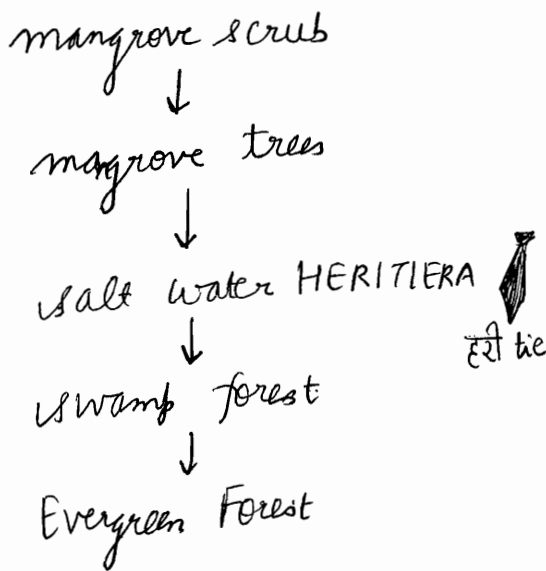 mangrove scrub
mangrove trees
salt water HERITIERA
हरी tie
swamp forest
Evergreen Forest